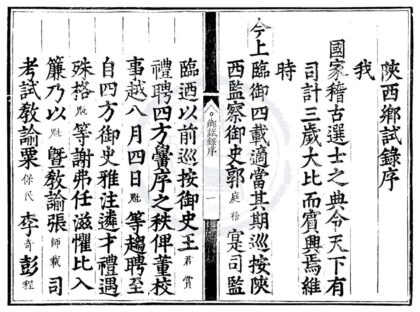 陝西鄉試錄序
我
國家稽古選士之典令天下有
司計三歲大比而賓興焉維
時
今上臨御四載適當其期巡按陝
西監察御史郭庭梧寔司監
鄉試錄序 一
臨迺以前巡按御史王君賞
禮聘四方黌序之秩俾董校
事越八月四日魁等趨聘至
自四方御史雅注遴才禮遇
殊格魁等謝弗任滋懼比入
簾乃以魁曁教諭張師載司
考試教諭栗保民李奇彭程